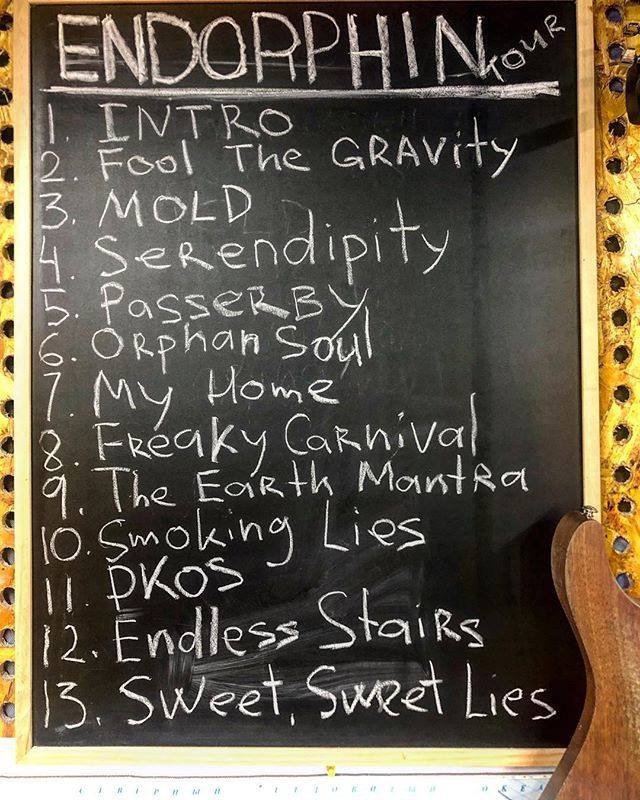 ENDORPHIN TOUR
1. INTRO
2. Fool The GRAVity
3. MOLD
4. Serendipity
5. Passerby
6. Orphan Soul
7. My Home
8. Freaky Carnival
9. The Earth Mantra
10. Smoking Lies
11. DKOS
12. Endless Stairs
13. Sweet, Sweet Lies